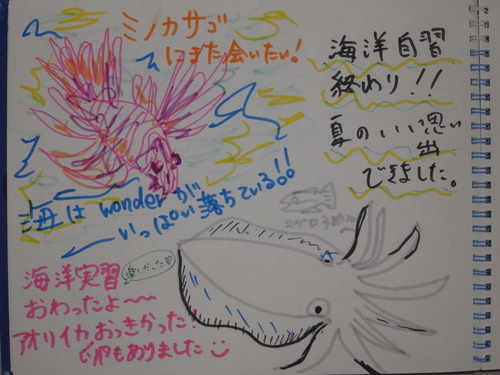 ミノカサゴ
にまた会いたい!
海洋自習
終わり!!
夏のいい思い
出
できました。
海は wonderが
いっぱい落ちている!!
海洋実習
楽しかった♡
おわったよ〜〜
アオリイカおっきかった!
卵もありました